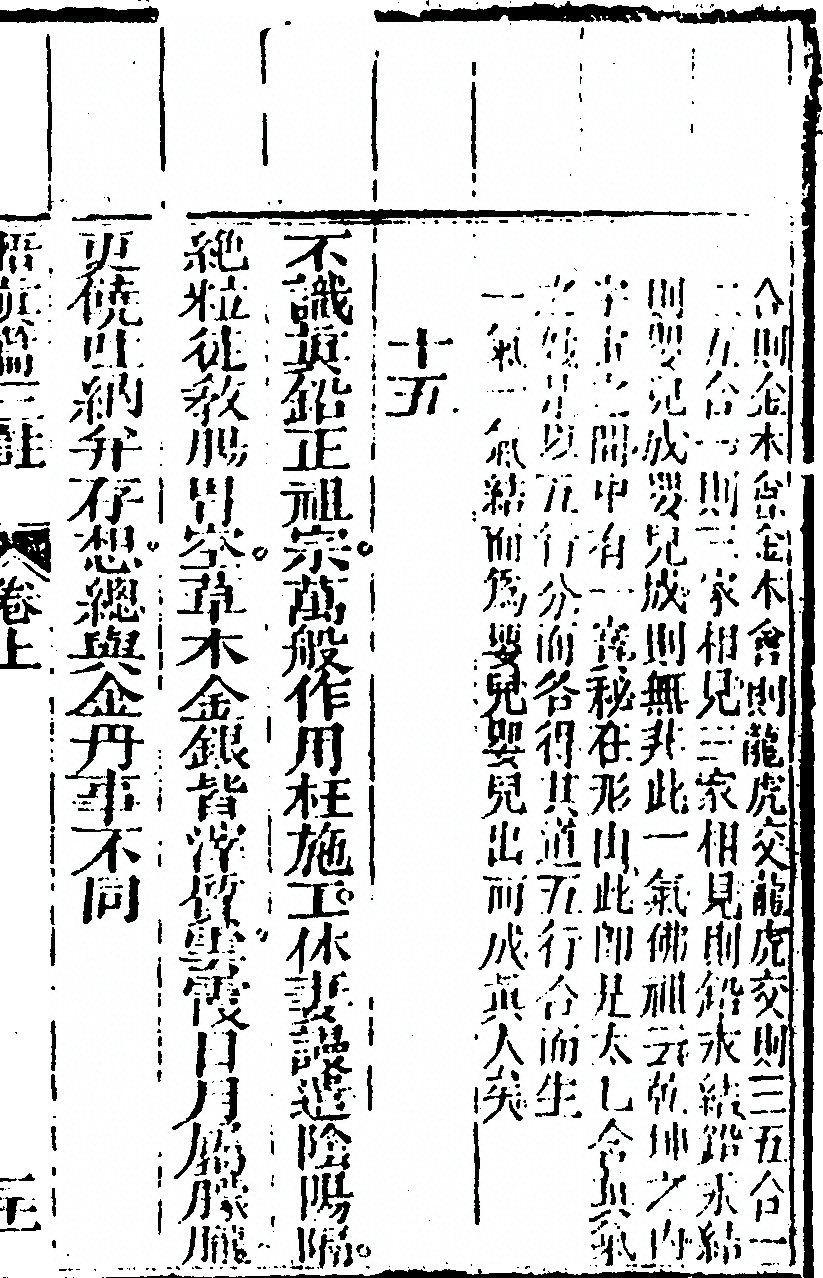 合則金木會金木會則龍虎交龍虎交則三五合一
三五合一則三家相見三家相見則鉛汞結鉛汞結
則嬰兒成嬰兒成則無非此一氣佛祖云乾坤之內
宇宙之間中有一寶秘在形山此即是太乙含眞氣
之妙是以五行分而各得其道五行合而生
一氣一氣結而爲嬰兒嬰兒出而成眞人矣
十五
不識眞鉛正祖宗萬般作用枉施工休妻謾遣陰陽隔
絶粒徒教腸胃空草木金銀皆滓質雲霞日月屬朦朧
更饒吐納幷存想總與金丹事不同
悟眞篇三註 卷上